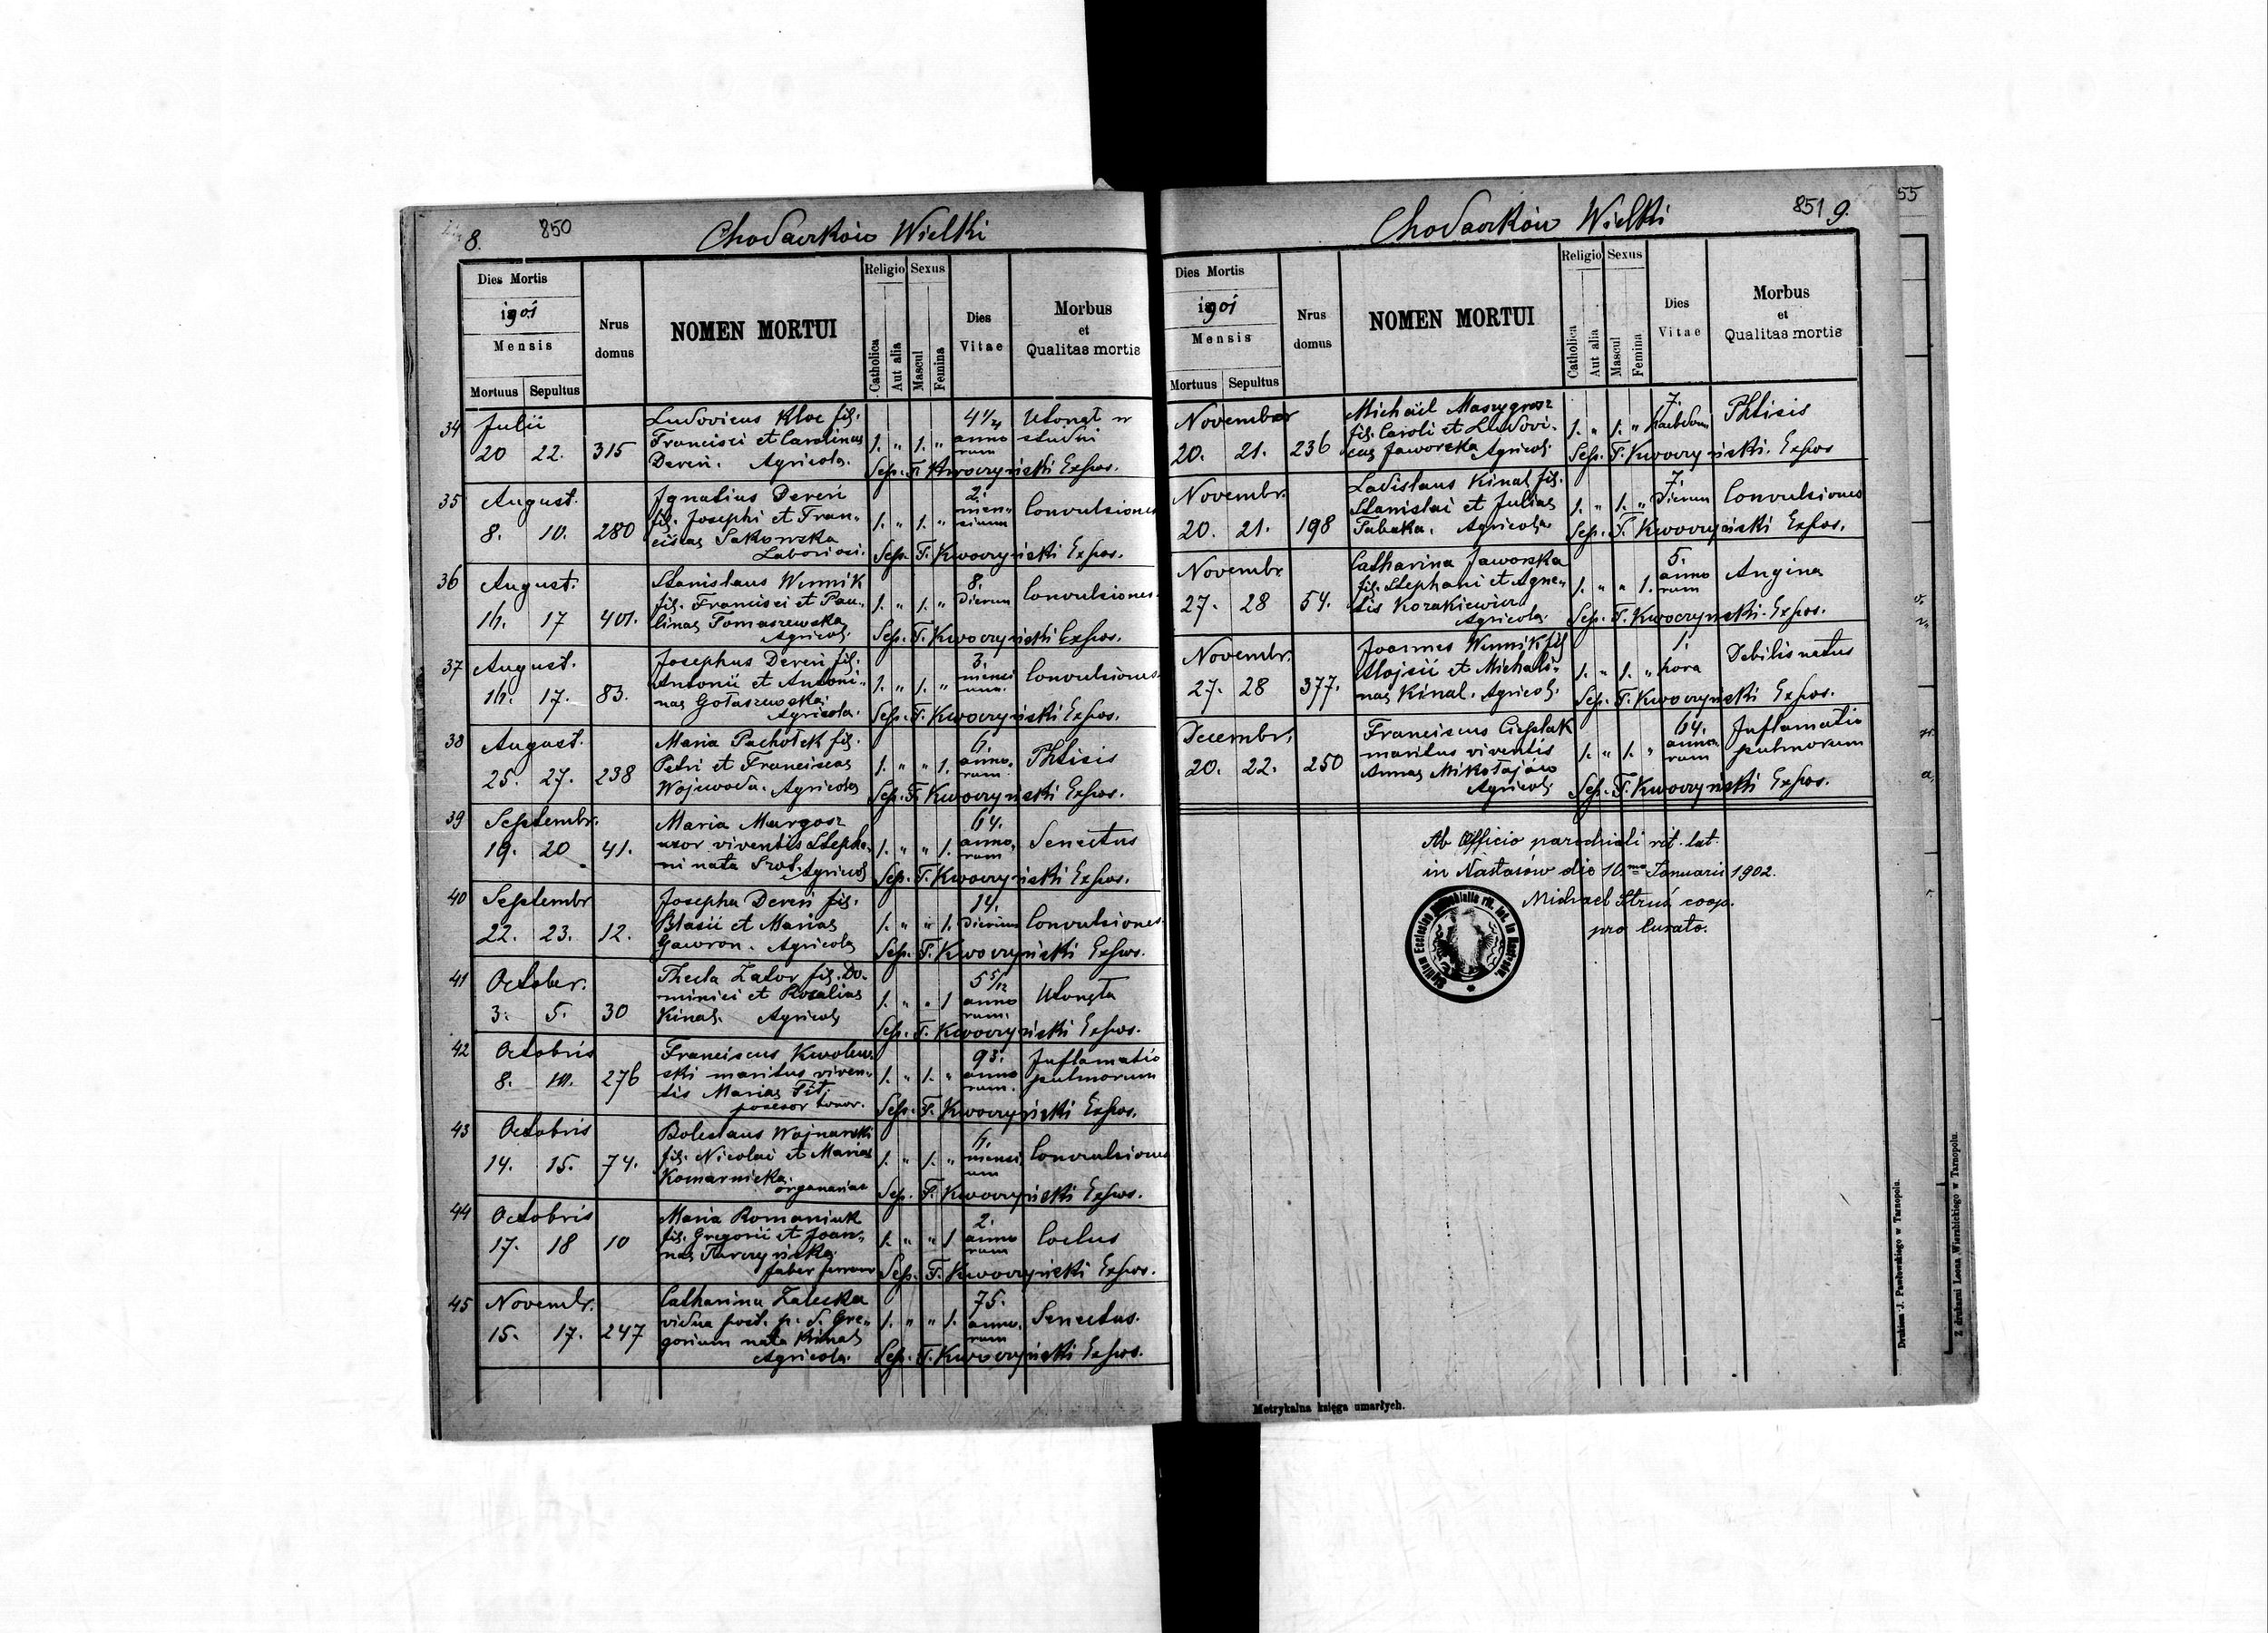 8.
850
Chodaczków Wielki
Dies Mortis
1901
Mensis
Mortuus
Sepultus
Nrus
domus
NOMEN MORTUI
Religio
Catholica
Aut alia
Sexus
Mascul
Femina
Dies
Vitae
Morbus
et
Qualitas mortis
34
Julii
20 22. 315
Ludovicus Kloc fil.
Francisci et Carolinae
Dereń. Agricola.
1. " 1. "
4 1/4
anno
rum
Utonął w
studni
Sep. F. Kwoczyński Expos.
35
August.
8. 10. 280
Ignatius Dereń
fil. Josephi et Fran„
ciscae Sakowska
Laboriosi.
1. " 1. "
2.
men„
sium
Convulsiones
Sep. F. Kwoczyński Expos.
36
August.
16. 17 401.
Stanislaus Winnik
fil. Francisci et Pau„
linae Tomaszewska
Agricol.
1. " 1. "
8.
Dierum
Convulsiones.
Sep. F. Kwoczyński Expos.
37
August.
16. 17. 83.
Josephus Dereń fil.
Antonii et Antoni„
nae Gołaszewska
Agricola.
1. " 1. "
3.
mensi
um.
Convulsiones.
Sep. F. Kwoczyński Expos.
38
August.
25. 27. 238
Maria Pachołek fil.
Petri et Franciscae
Wojewoda. Agricola
1. " " 1.
6.
anno„
rum.
Phtisis
Sep. F. Kwoczyński Expos.
39
Septembr.
19. 20 41.
Maria Margosz
uxor viventis Stepha„
ni nata Szot. Agricol
1. " " 1.
64.
anno„
rum
Senectus
Sep. F. Kwoczyński Expos.
40
Septembr
22. 23. 12.
Josepha Dereń fil.
Blasii et Mariae
Gawron. Agricola
1. " " 1.
14.
Dierum
Convulsiones.
Sep. F. Kwoczyński Expos.
41
October.
3. 5. 30
Thecla Zator fil. Do„
minici et Rosaliae
Kinal. Agricola
1. " " 1
5 5/12
anno
rum.
Utonęła
Sep. F. Kwoczyński Expos.
42
Octobris
8. 10. 276
Franciscus Kwolew„
ski maritus viven„
tis Mariae Tit.
posesor bonor.
1. " 1. "
93.
anno
rum.
Inflamatio
pulmorum
Sep. F. Kwoczyński Expos.
43
Octobris
14. 15. 74.
Boleslaus Wojnarski
fil. Nicolai et Mariae
Komarnicka.
organariae
1. " 1. "
6.
mensi
um
Convulsiones
Sep. F. Kwoczyński Expos.
44
Octobris
17. 18 10
Maria Romaniuk
fil. Gregorii et Joan„
nae Turczyńska.
faber ferrar
1. " " 1.
2.
anno
rum
Coclus
Sep. F. Kwoczyński Expos.
45
Novembr.
15. 17. 247
Catharina Zalecka
vidua post. p. d. Gre„
gorium nata Kinal
Agricola.
1. " " 1.
75.
anno„
rum
Senectus.
Sep. F. Kwoczyński Expos.
Chodaczków Wielki
851
9.
Dies Mortis
1901
Mensis
Mortuus
Sepultus
Nrus
domus
NOMEN MORTUI
Religio
Catholica
Aut alia
Sexus
Mascul
Femina
Dies
Vitae
Morbus
et
Qualitas mortis
November
20. 21. 236
Michaël Maszygrosz
fil. Caroli et Ludovi„
cae Jaworska Agricol.
1. " 1. "
7.
haebdom
Phtisis
Sep. F. Kwoczyński. Expos
Novembr.
20. 21. 198
Ladislaus Kinal fil.
Stanislai et Juliae
Tabaka. Agricola.
1. " 1. "
7.
Dierum
Convulsiones
Sep. F. Kwoczyński Expos.
Novembr.
27. 28 54.
Catharina Jaworska
fil. Stephani et Agne„
tis Kozakiewicz
Agricola.
1. " " 1.
5.
anno
rum
Angina
Sep. F. Kwoczyński. Expos.
Novembr.
27. 28 377.
Joannes Winnik fil
Alojsii et Michali„
nae Kinal. Agricol.
1. " 1. "
1.
hora
Debilis natus
Sep. F. Kwoczyński Expos.
Decembr.
20. 22. 250
Franciscus Cieplak
maritus viventis
Annae Mikołajów
Agricol.
1. " 1. "
64.
anno„
rum
Inflamatio
pulmorum
Sep. F. Kwoczyński Expos.
Ab Officio parochiali rit. lat.
in Nastasów die 10ma Januarii 1902.
Michael Struś coop.
pro Curato.
Metrykalna księga umarłych.
Drukiem J. Pawłowskiego w Tarnopolu.
55
Z drukarni Leona Wierzbickiego w Tarnopolu.